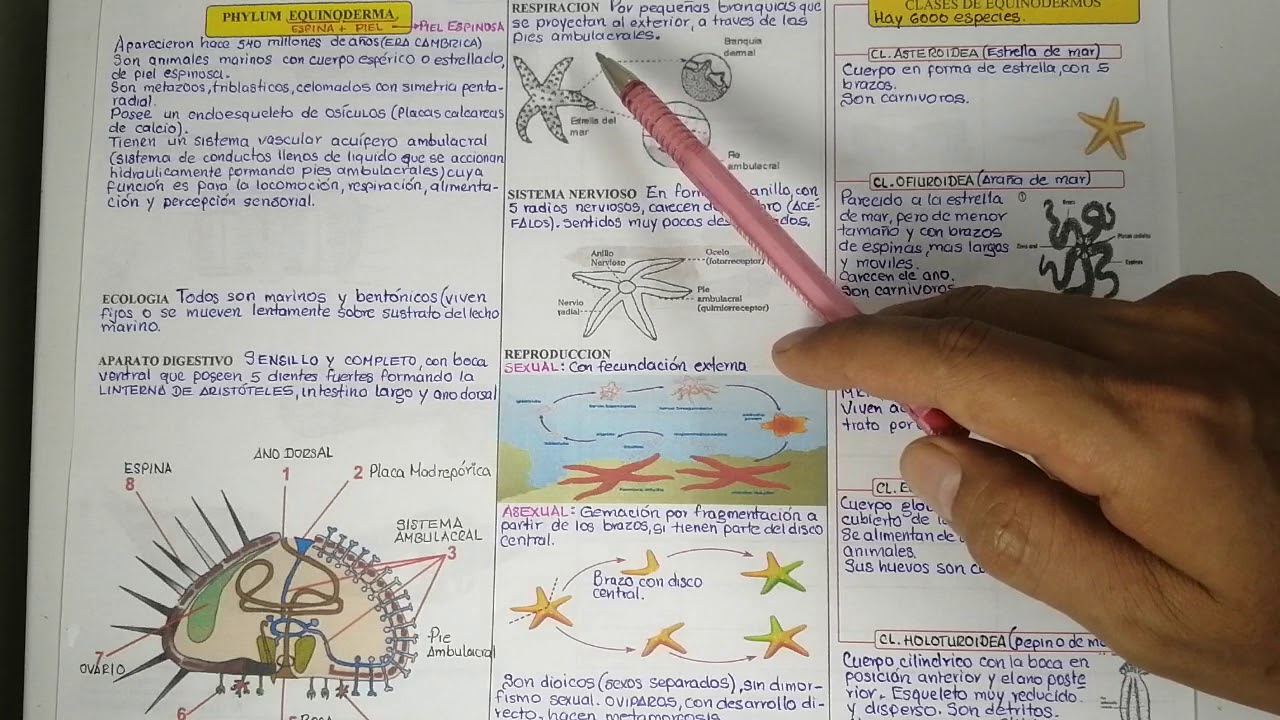 PHYLUM EQUINODERMA
ESPINA + PIEL → PIEL ESPINOSA
Aparecieron hace 540 millones de años (ERA CAMBRICA)
Son animales marinos con cuerpo esférico o estrellado,
de piel espinosa.
Son metazoos, triblasticos, celomados con simetria penta-
radial.
Posee un endoesqueleto de osículos (Placas calcareas
de calcio).
Tienen un sistema vascular acuífero ambulacral
(sistema de conductos llenos de liquido que se accionan
hidraulicamente formando pies ambulacrales) cuya
función es para la locomoción, respiración, alimenta-
ción y percepción sensorial.
ECOLOGIA Todos son marinos y bentónicos (viven
fijos o se mueven lentamente sobre sustrato del lecho
marino.
APARATO DIGESTIVO SENSILLO y COMPLETO, con boca
ventral que poseen 5 dientes fuertes formando la
LINTERNA DE ARISTÓTELES, intestino largo y ano dorsal
ESPINA
8
ANO DORSAL
1
2 Placa Madrepórica
SISTEMA
AMBULACRAL
3
Pie
Ambulacral
7
OVARIO
6
5 BOCA
RESPIRACION Por pequeñas branquias que
se proyectan al exterior, a traves de los
pies ambulacrales.
Branquia
dermal
Estrella del
mar
Pie
ambulacral
SISTEMA NERVIOSO En anillo, con
5 radios nerviosos, carecen (ACE-
FALOS). Sentidos muy pocos
Anillo
Nervioso
Ocelo
(fotorreceptor)
Nervio
radial
Pie
ambulacral
(quimiorreceptor)
REPRODUCCION
SEXUAL: Con fecundación externa
ASEXUAL: Gemación por fragmentación a
partir de los brazos, si tienen parte del disco
central.
Brazo con disco
central.
Son dioicos (sexos separados), sin dimor-
fismo sexual. OVIPAROS, con desarrollo di-
recto, hacen metamorfosis
CLASES DE EQUINODERMOS
Hay 6000 especies.
CL. ASTEROIDEA (Estrella de mar)
Cuerpo en forma de estrella, con 5
brazos.
Son carnivoros.
CL. OFIUROIDEA (Araña de mar)
Parecido a la estrella
de mar, pero de menor
tamaño y con brazos
de espinas, mas largos
y moviles.
Carecen de ano.
Son carnivoros
Viven
trato por
CL.
Cuerpo
cubierto de
Se alimentan de
animales.
Sus huevos son
CL. HOLOTUROIDEA (pepino de
Cuerpo cilindrico con la boca en
posición anterior y el ano poste
rior. Esqueleto muy reducido
y disperso. Son detritos.